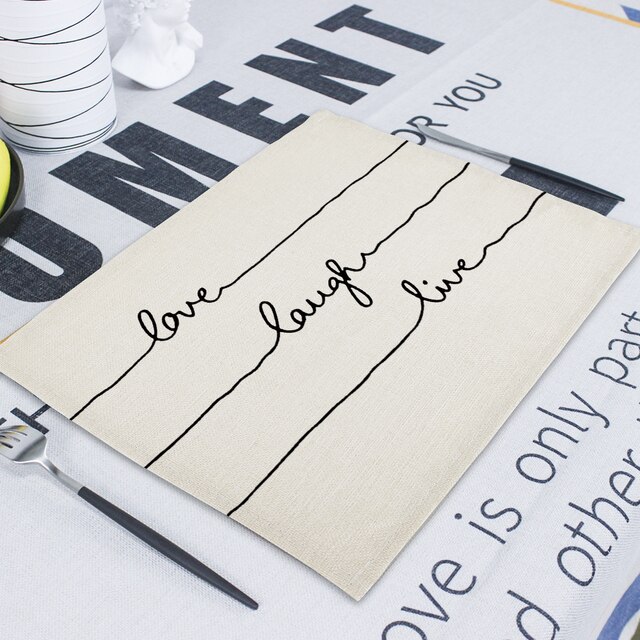 UMENT
OR YOU
love
laugh
live
ove is only part
d other